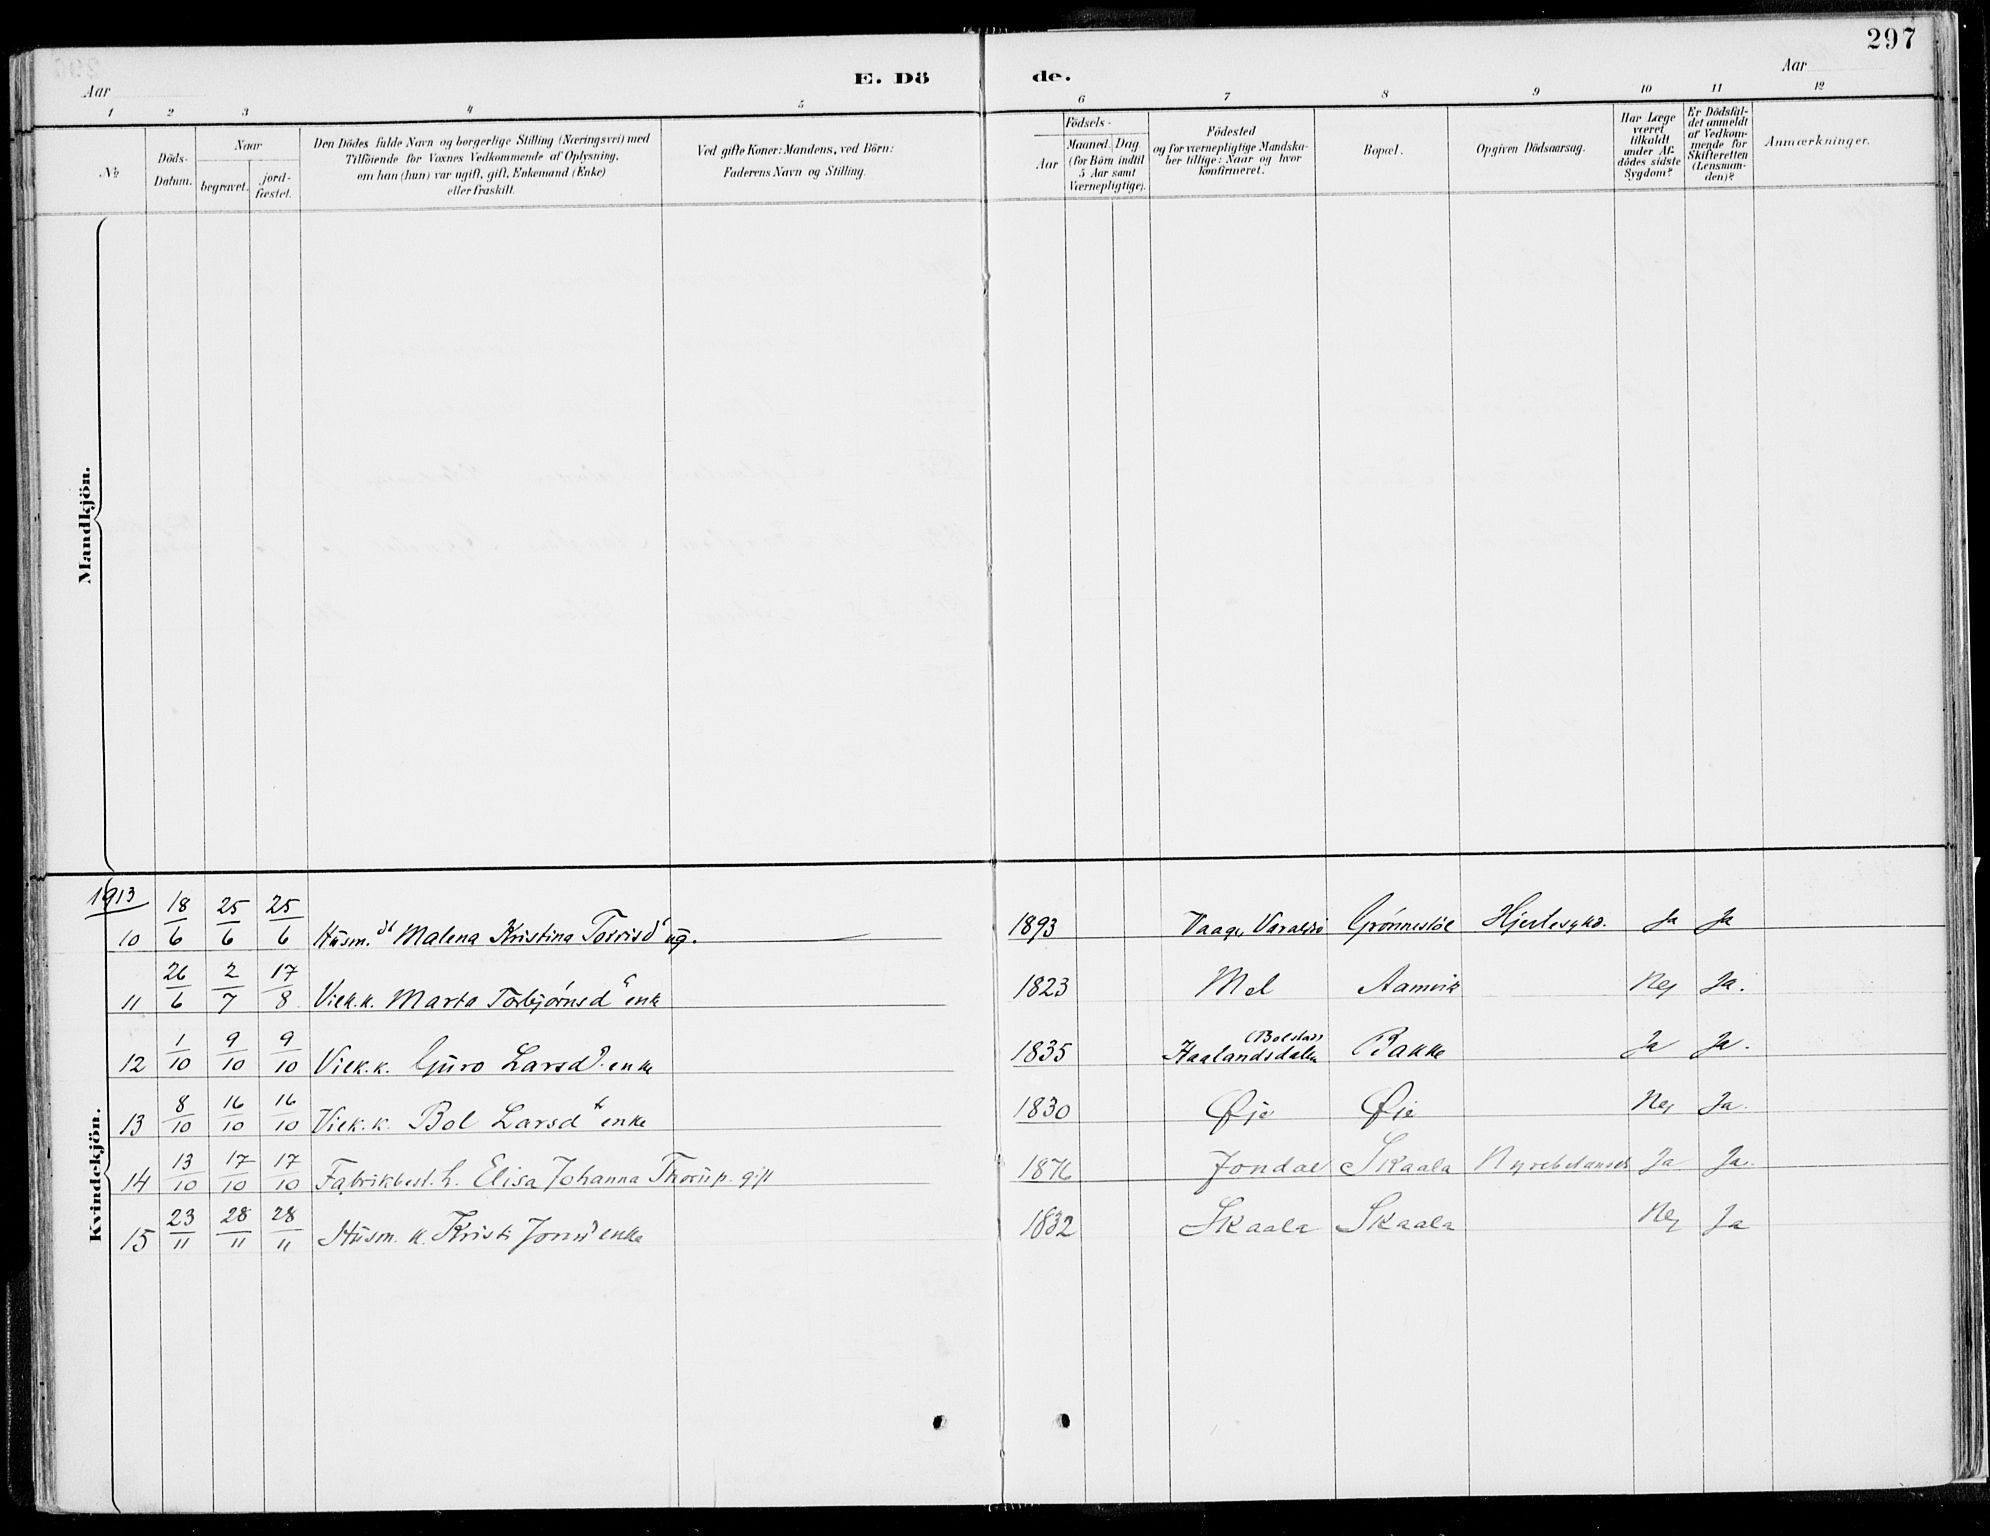 297
Aar
E. Dö
de.
Aar
1 2 3 4 5 6 7 8 9 10 11 12
№
Döds-
Datum.
Naar
begravet.
jord-
fæstet.
Den Dödes fulde Navn og borgerlige Stilling (Næringsvei) med
Tilföiende for Voxnes Vedkommende af Oplysning,
om han (hun) var ugift, gift, Enkemand (Enke)
eller fraskilt.
Ved gifte Koner: Mandens, ved Börn:
Faderens Navn og Stilling.
Födsels-
Aar
Maaned.
Dag
(for Börn indtil
5 Aar samt
Værnepligtige).
Födested
og for værnepligtige Mandska-
ber tillige: Naar og hvor
konfirmeret.
Bopæl.
Opgiven Dödsaarsag.
Har Læge
været
tilkaldt
under Af-
dödes sidste
Sygdom?
Er Dödsfal-
det anmeldt
af Vedkom-
mende for
Skifteretten
(Lensman-
den)?
Anmærkninger.
Mandkjön.
Kvindekjön.
1913
10 18/6 25/6 25/6 Husm. dt Malena Kristina Torrisd ug. 1893 Vaage, Varaldsö Grönnestöl Hjertesykd. Ja Ja
11 26/6 2/7 17/8 Viek.k. Marta Torbjørnsd enke 1823 Mel Aamvik Nej Ja.
12 1/10 9/10 9/10 Viek.k. Guro Larsd. enke 1835 (Bolstad) Haalandsdalen Bakke Ja Ja.
13 8/10 16/10 16/10 Viek.k. Bol Larsdtr enke 1830 Øje Øje Nej Ja.
14 13/10 17/10 17/10 Fabrikbest. h. Elisa Johanna Thorup. gift 1876 Jondal Skaala Ja Ja.
15 23/11 28/11 28/11 Husm. k. Kristi Jonsd enke 1832 Skaala Skaala Nej Ja